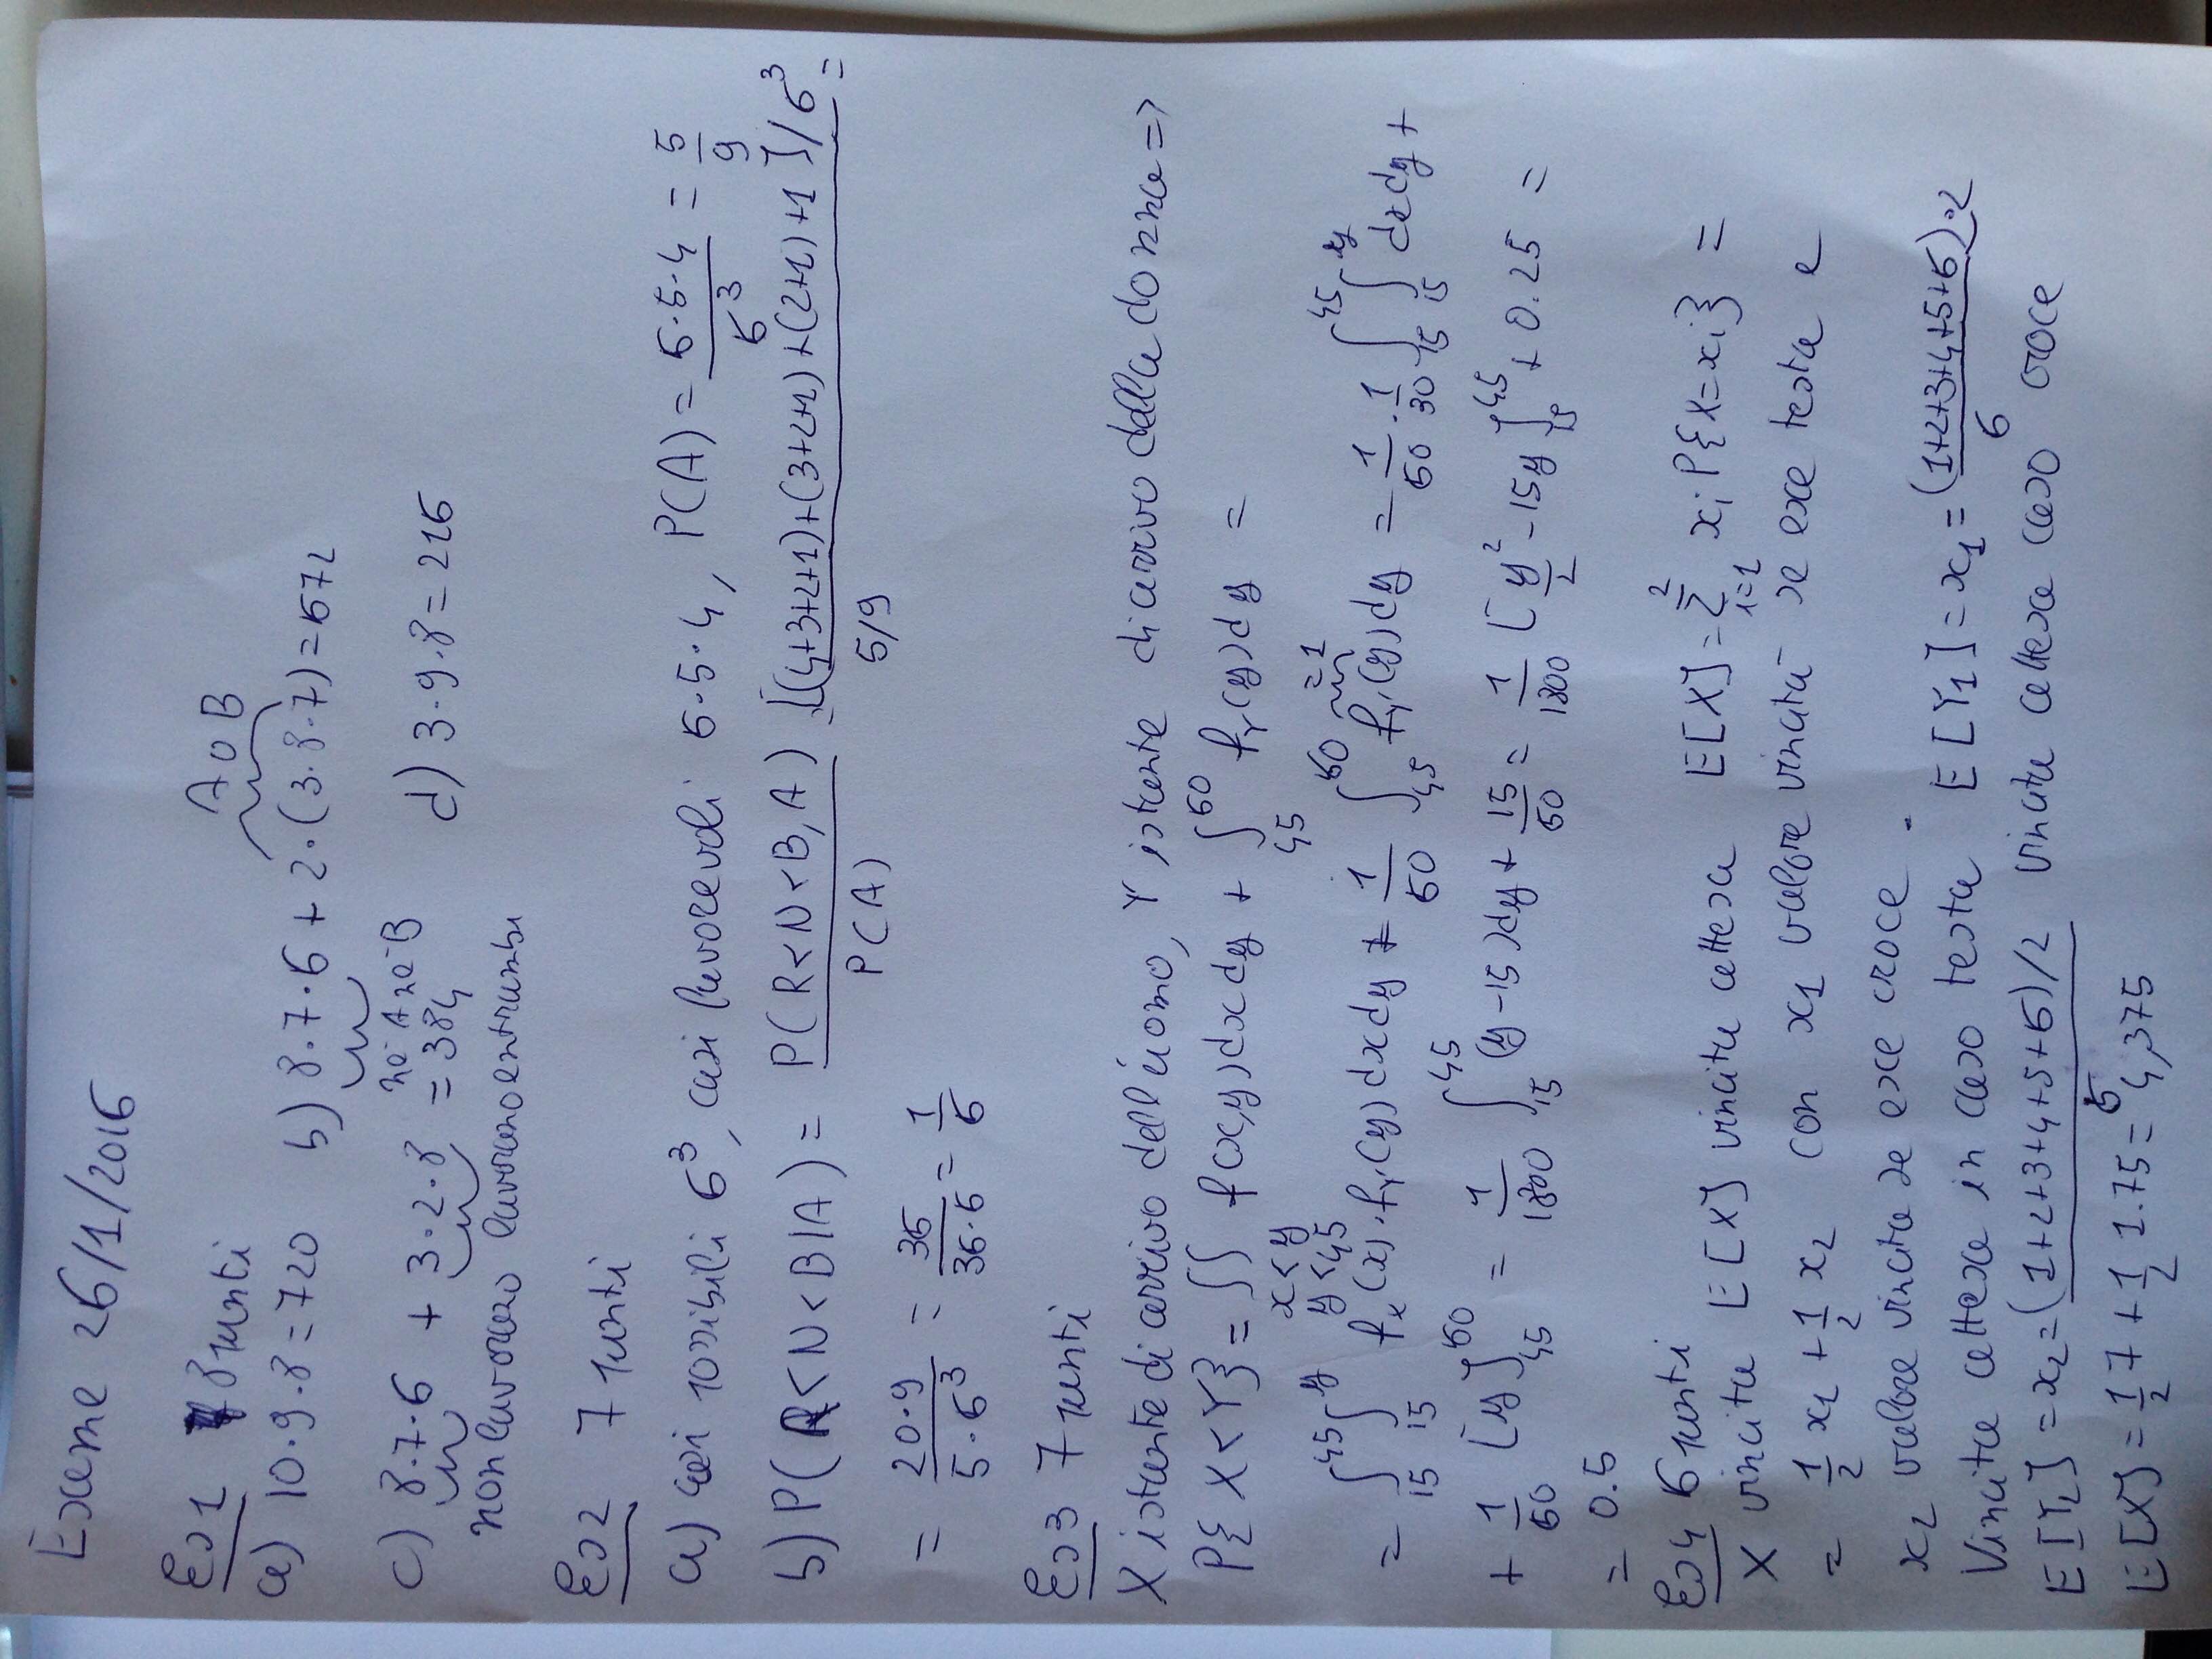 Esame 26/1/2016
Es1 8 punti
a) 10·9·8=720 b) 8·7·6 + 2·(3·8·7)=672
né A né B A o B
c) 8·7·6 + 3·2·8 = 384 d) 3·9·8=216
non lavorano lavorano entrambi
Es2 7 punti
a) casi possibili 6³, casi favorevoli 6·5·4, P(A) = 6·5·4/6³ = 5/9
b) P(R<N<B|A) = P(R<N<B,A)/P(A) = [(4+3+2+1)+(3+2+1)+(2+1)+1]/6³ / 5/9 =
= 20·9/5·6³ = 36/36·6 = 1/6
Es3 7 punti
X istante di arrivo dell'uomo, Y istante di arrivo della donna =>
P{X<Y} = ∫∫ x<y y<45 f(x,y)dxdy + ∫45^60 fY(y)dy =
= ∫15^45 ∫15^y fx(x)·fY(y)dxdy + 1/60 ∫45^60 fY(y)dy = 1/60 · 1/30 ∫15^45 ∫15^y dxdy +
+ 1/60 [y]45^60 = 1/1800 ∫15^45 (y-15)dy + 15/60 = 1/1800 [y²/2 -15y]15^45 + 0.25 =
= 0.5
Es4 6 punti
X vincita E[X] vincita attesa E[X] = Σ i=1^2 xi P{X=xi} =
= 1/2 x1 + 1/2 x2 con x1 valore vincita se esce testa e
x2 valore vincita se esce croce.
Vincita attesa in caso testa E[Y1] = x1 = (1+2+3+4+5+6)·2/6
E[Y2] = x2 = (1+2+3+4+5+6)/2/6 vincita attesa caso croce
E[X] = 1/2 7 + 1/2 1.75 = 4,375